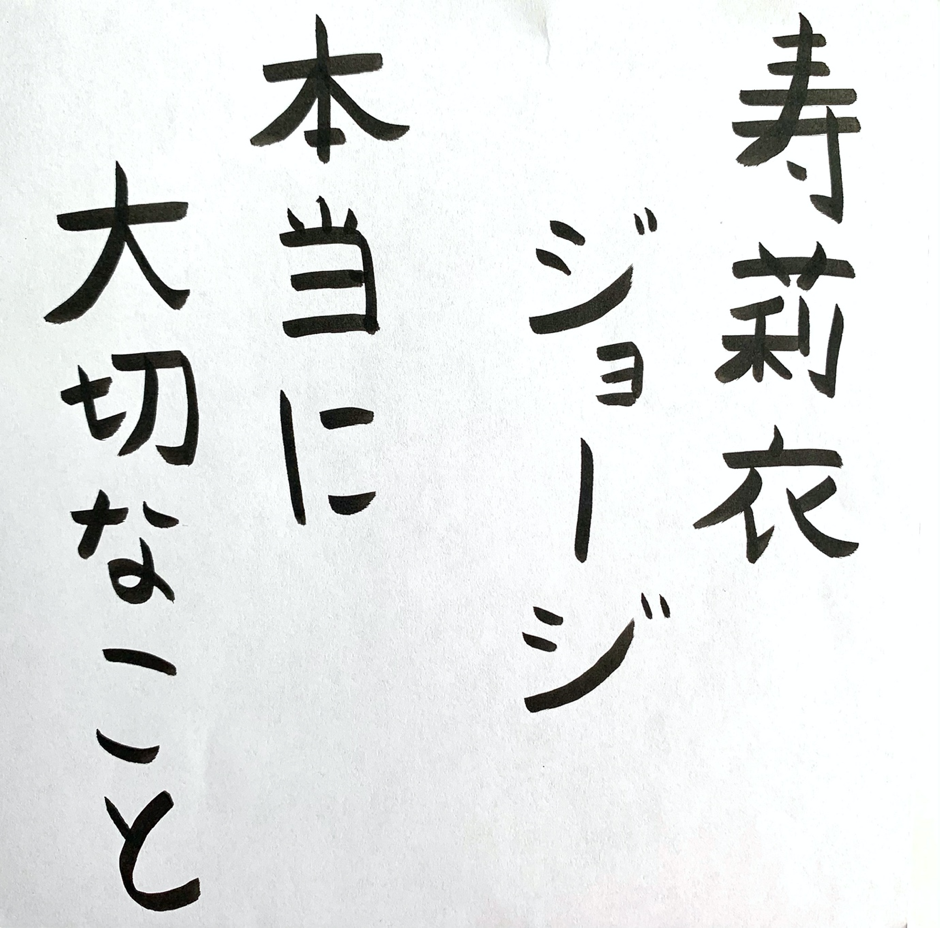 寿莉衣
ジョージ
本当に
大切なこと